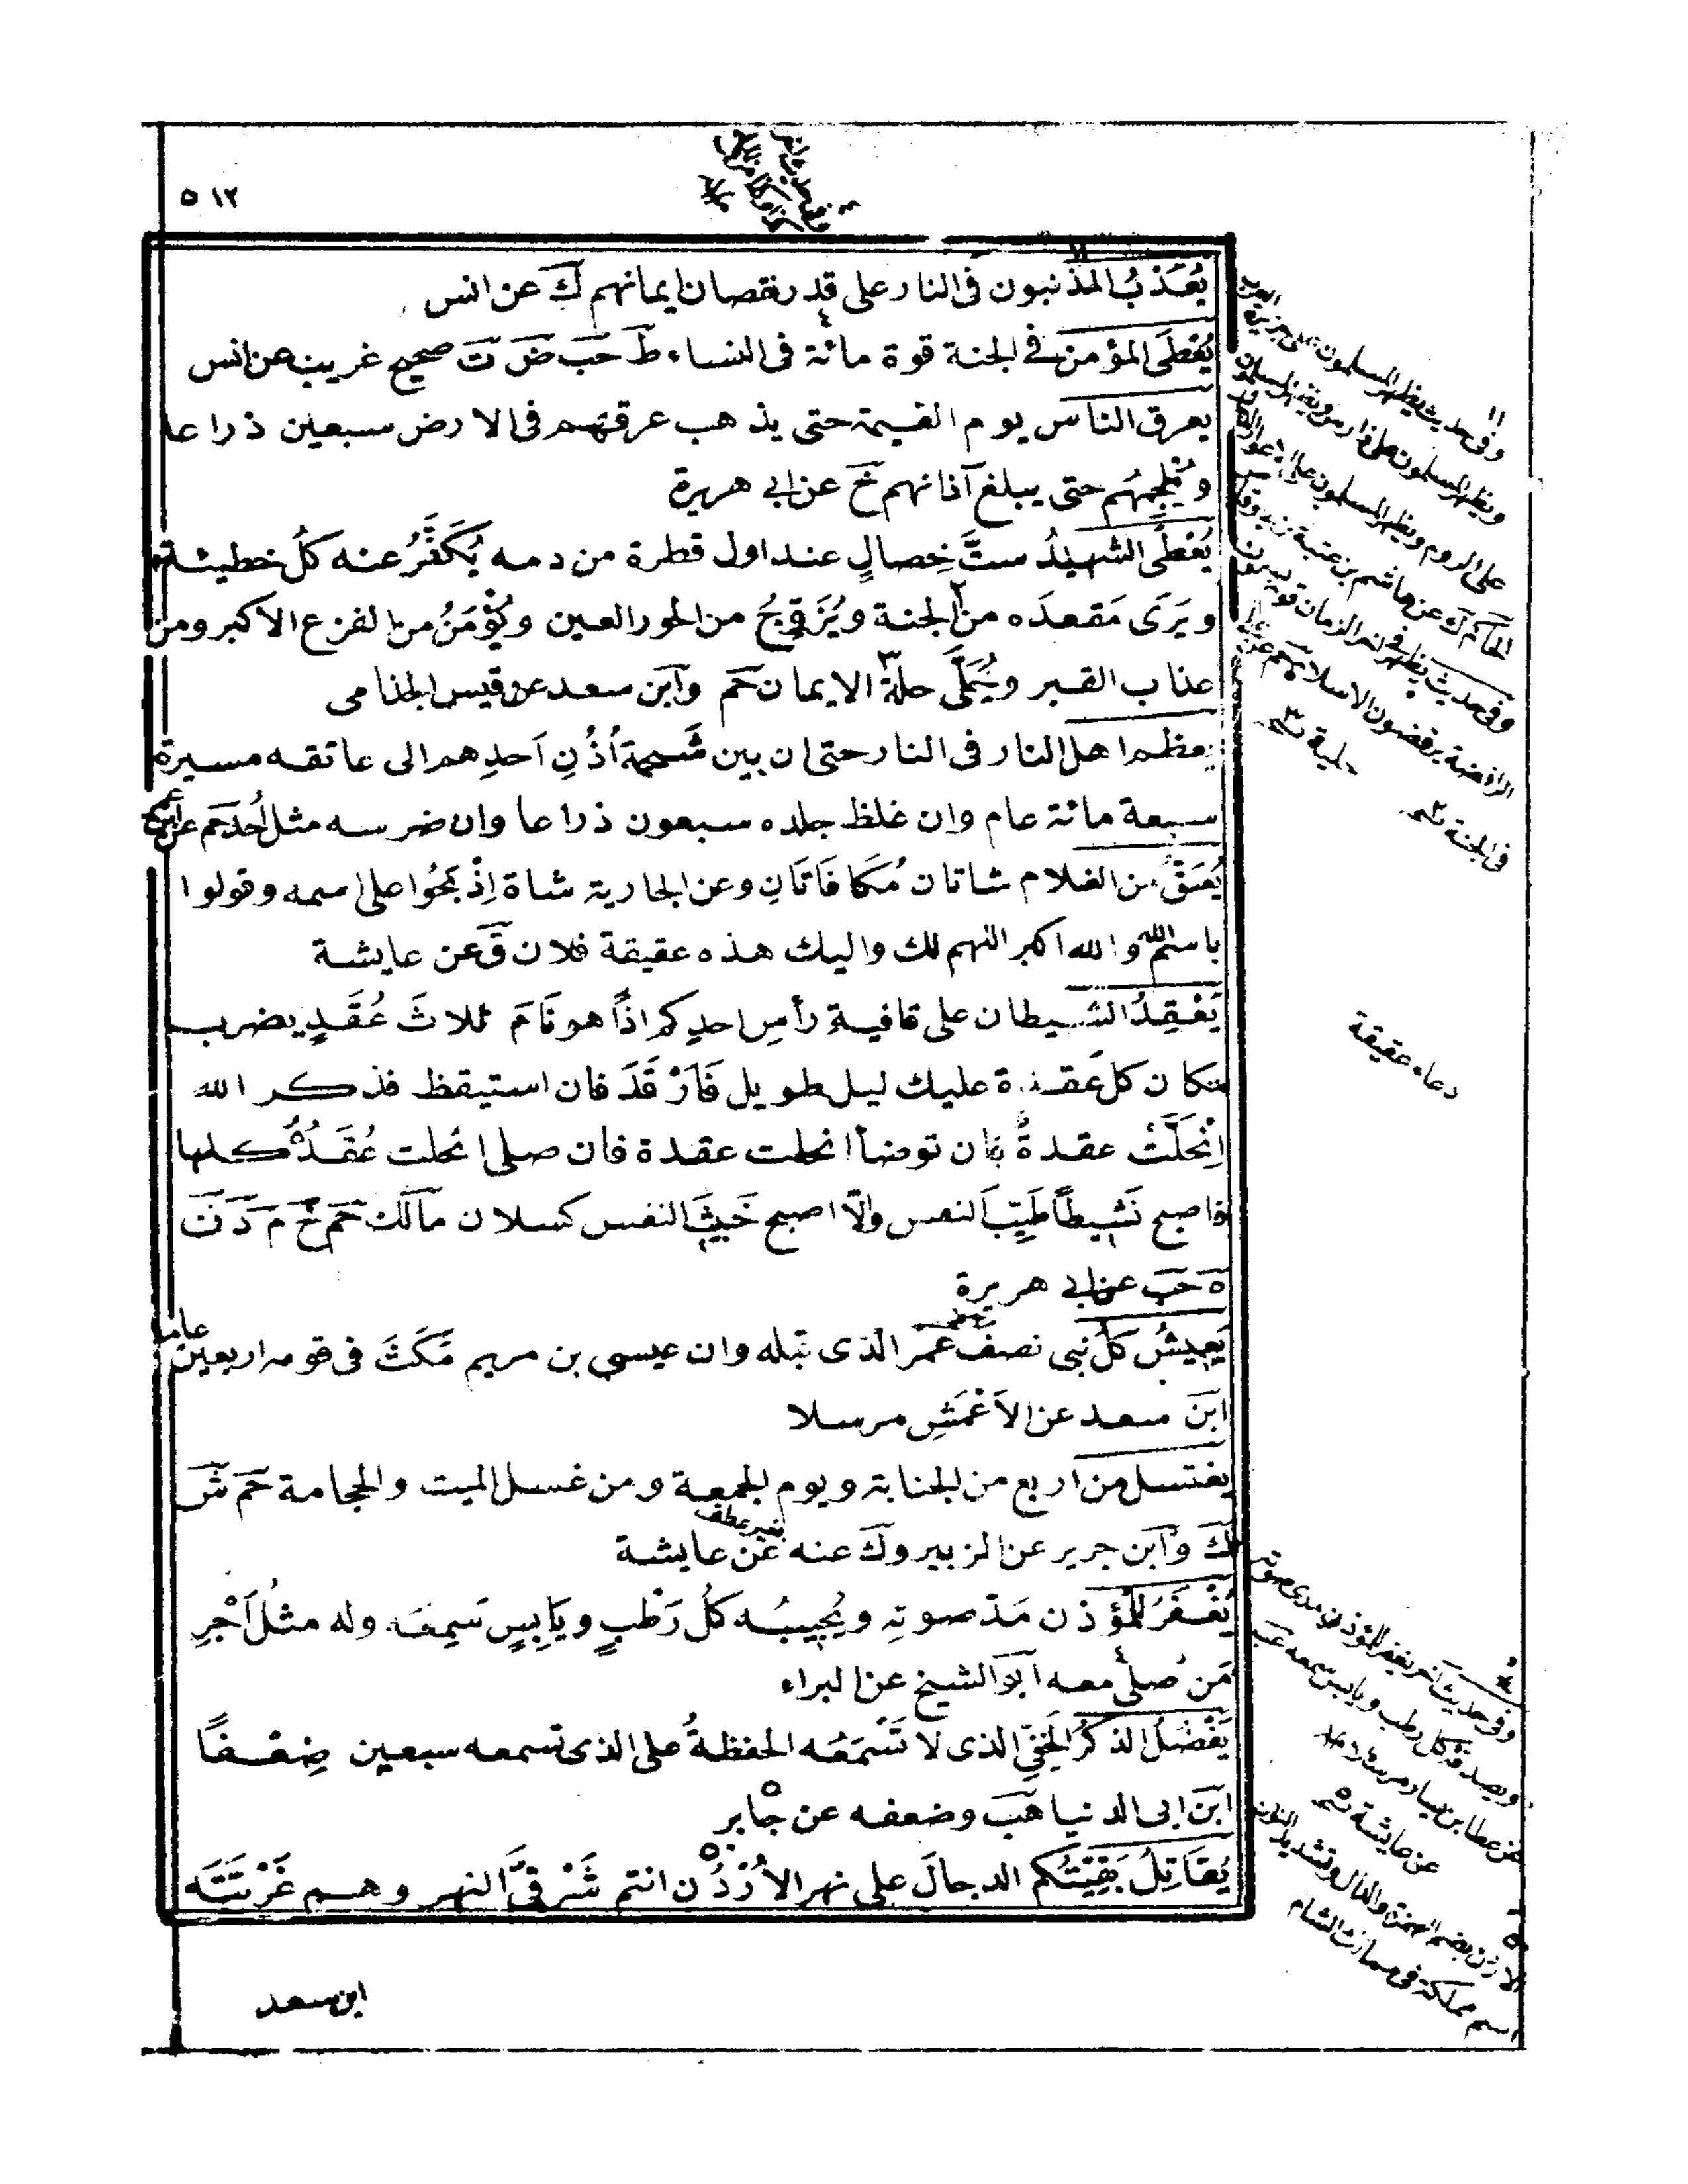 ٥١٢
يُعَذَّبُ المذنبون فى النار على قدر نقصان ايمانهم ك عن انس
يُعْطَى المؤمن في الجنة قوة مائة فى النساء ط حب ض ت صحيح غريب عن انس
يعرق الناس يوم القيمة حتى يذهب عرقهم فى الارض سبعين ذراعا
ويُلْجِمُهُم حتى يبلغ آذانهم خ عن ابي هريرة
يُعْطَى الشهيدُ ستَّ خِصالٍ عند اول قطرة من دمه يُكَفَّرُ عنه كلُّ خطيئة
ويَرَى مَقعدَه من الجنة ويُزَوَّجُ من الحور العين ويُؤْمَنُ من الفزع الاكبر ومن
عذاب القبر ويُحَلَّى حلة الايمان حم وابن سعد عن قيس الجذامى
يعظم اهل النار فى النار حتى ان بين شَحمةِ اُذُنِ اَحدِهم الى عاتقه مسيرة
سبعة مائة عام وان غلظ جلده سبعون ذراعا وان ضرسه مثل اُحُدٍ حم عن ابن عمر
يُعَقُّ عن الغلام شاتان مُكَافَاتَانِ وعن الجارية شاة اِذْبَحُوا على اسمه وقولوا
باسم الله والله اكبر اللهم لك واليك هذه عقيقة فلان ق عن عايشة
يَعْقِدُ الشيطان على قافية رأسِ احدِكم اذا هو نَامَ ثلاثَ عُقَدٍ يضرب
مكان كل عقدة عليك ليل طويل فَارْقَدَ فان استيقظ فذكر الله
اِنْحَلَّتْ عقدةٌ فان توضأ انحلت عقدة فان صلى انحلت عُقَدُهُ كلها
فاصبح نَشِيطاً طَيِّبَ النفس والّا اصبح خَبِيثَ النفس كسلان مالك حم خ م د ن
ه حب عن ابي هريرة
يَعِيشُ كلُّ نبى نصفَ عُمَرِ الذى قبله وان عيسى بن مريم مَكَثَ فى قومه اربعين عاما
ابن سعد عن الاَعْمَشِ مرسلا
يغتسل من اربع من الجنابة ويوم الجمعة ومن غسل الميت والحجامة حم ش
ك وابن جرير عن الزبير وك عنه عن عايشة
بغير عطف
يُغْفَرُ للمؤذن مَدَّ صوتِهِ ويُجِيبُه كلُّ رَطْبٍ ويَابِسٍ سَمِعَه وله مثلُ اَجْرِ
مَن صلّى معه ابو الشيخ عن البراء
يَفْضُلُ الذكرُ الخَفِيُّ الذى لا تَسْمَعُه الحفظةُ على الذى تسمعه سبعين ضِعْفًا
ابن ابى الدنيا هب وضعفه عن جابر
يُقَاتِلُ بَقِيَّتُكم الدجالَ على نهر الاُرْدُن انتم شَرْقىَّ النهر وهم غَرْبِيَّتَه
ابن سعد
وفى حديث يظهر المسلمون على جزيرة العرب
ويظهر المسلمون على فارس ويظهر المسلمون
على الروم ويظهر المسلمون على الاعور الدجال
الحاكم ك عن هاشم بن عتبة
وفى حديث يظهر فى آخر الزمان قوم يسمون
الرافضة يرفضون الاسلام
حلية
فى الجنة
دعاء عقيقة
وفى حديث آخر يغفر للمؤذن مدى صوته
ويصدقه كل رطب ويابس سمعه
عن عطا بن يسار مرسلا
عن عايشة
الاردن بضم الهمزة والدال وتشديد النون
اسم مملكة فى الشام